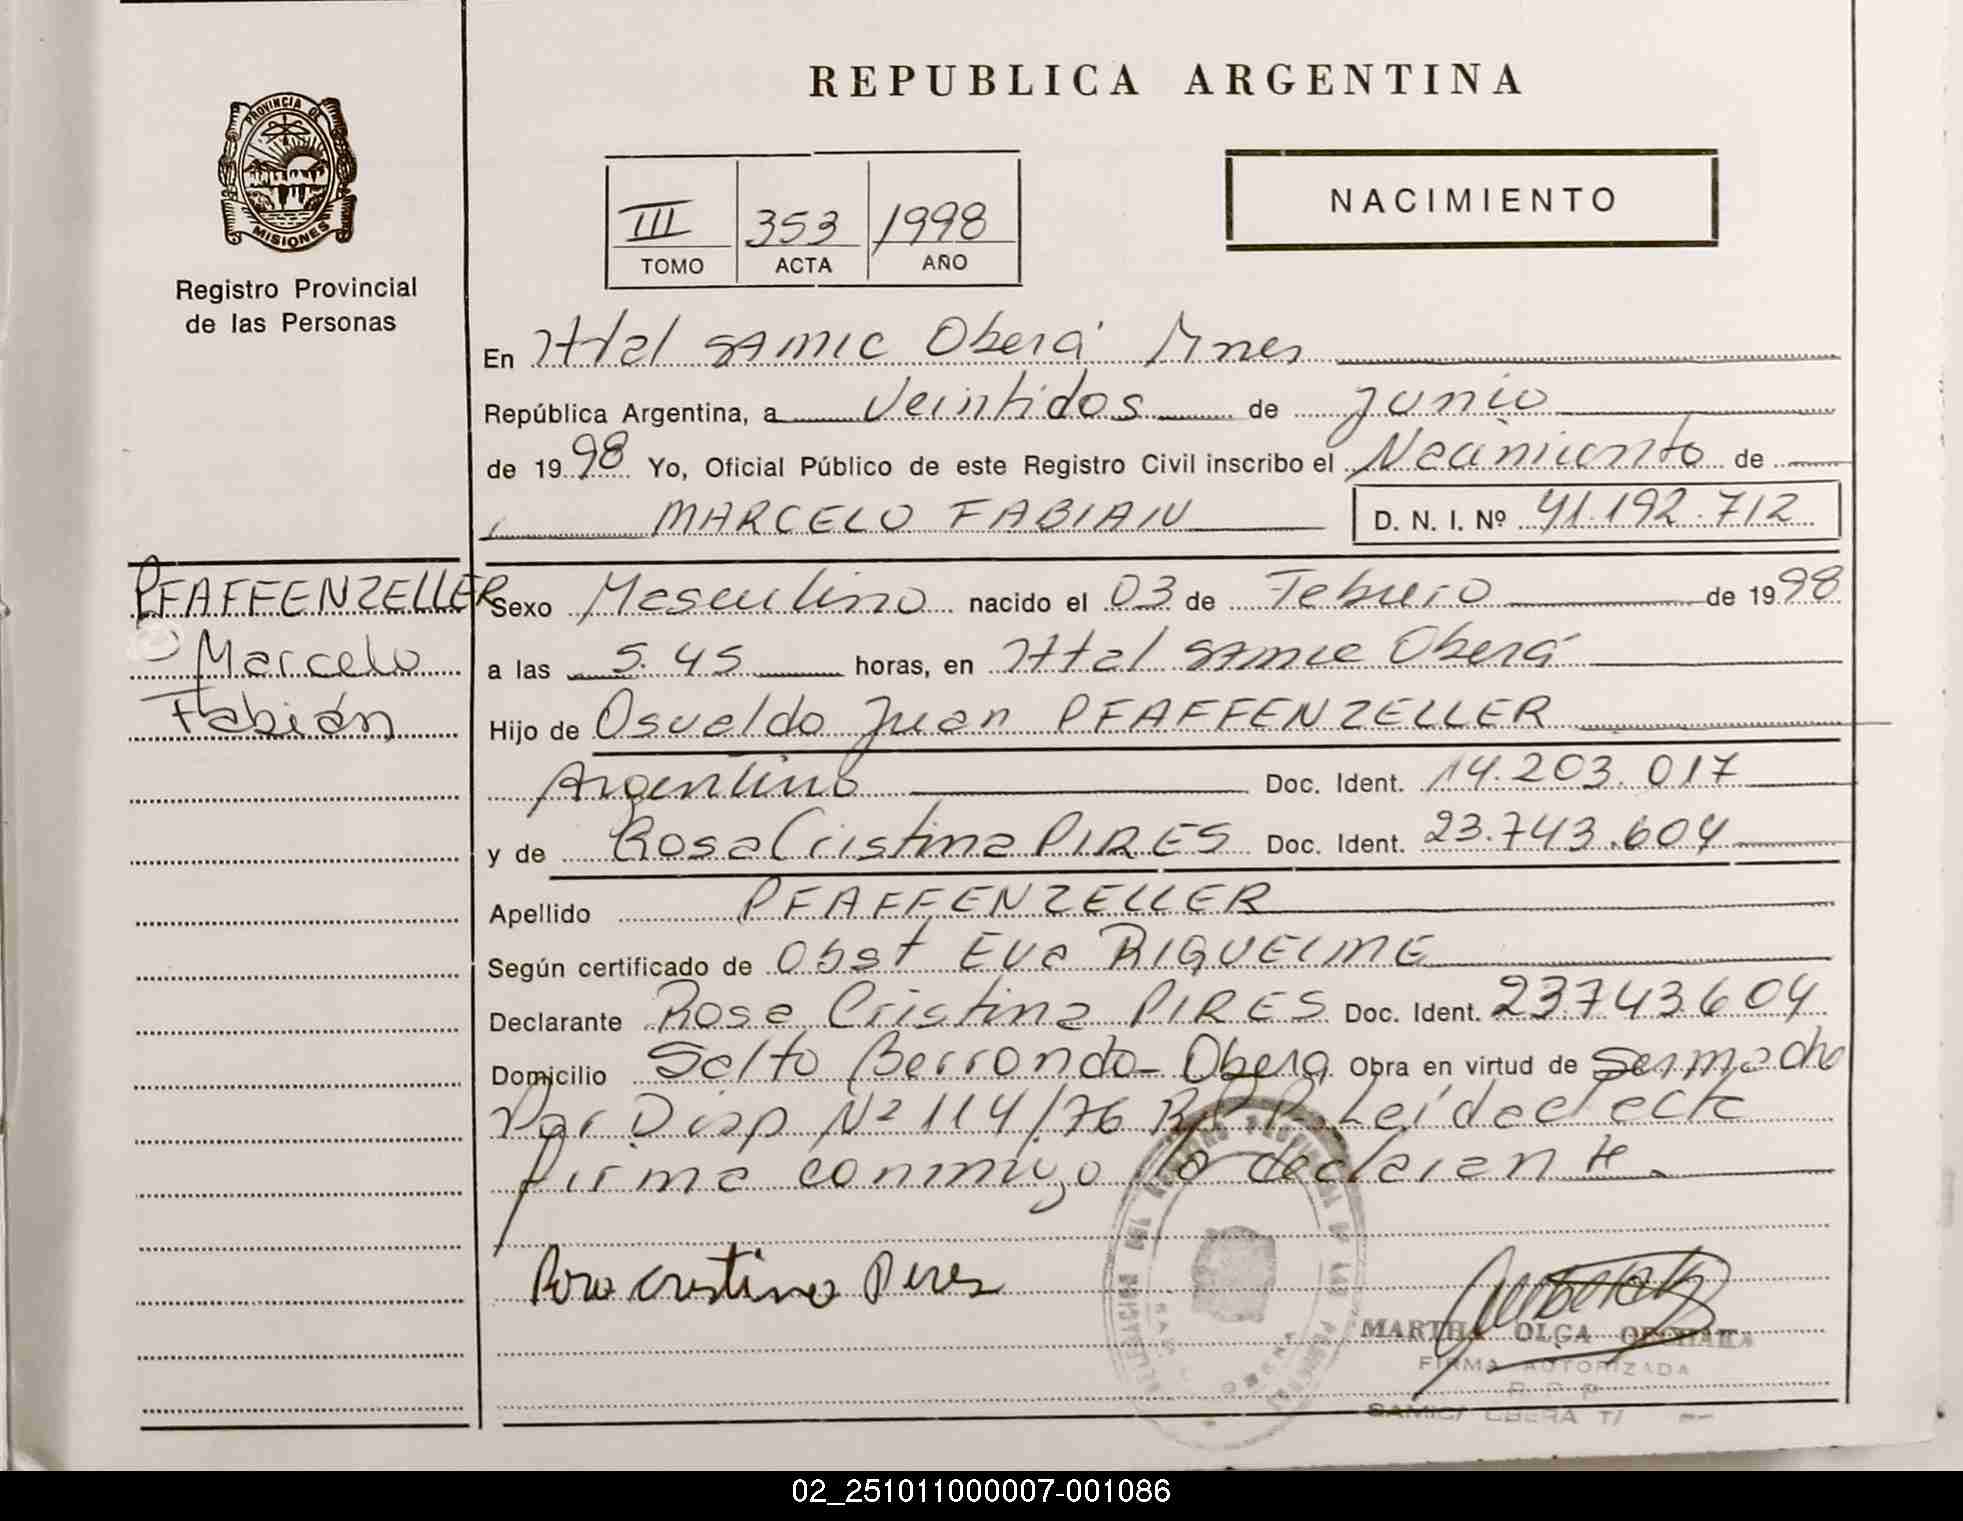 REPUBLICA ARGENTINA
PROVINCIA DE
MISIONES
Registro Provincial
de las Personas
III 353 1998
TOMO ACTA AÑO
NACIMIENTO
En Htal SAMIC Oberá Mnes
República Argentina, a Veintidos de junio
de 1998 Yo, Oficial Público de este Registro Civil inscribo el Nacimiento de
MARCELO FABIAN D. N. I. Nº 41.192.712
PFAFFENZELLER
Marcelo
Fabián
Sexo Masculino nacido el 03 de Febrero de 1998
a las 5.45 horas, en Htal SAMIC Oberá
Hijo de Osvaldo Juan PFAFFENZELLER
Argentino Doc. Ident. 14.203.017
y de Rosa Cristina PIRES Doc. Ident. 23.743.604
Apellido PFAFFENZELLER
Según certificado de Obst Eva RIQUELME
Declarante Rosa Cristina PIRES Doc. Ident. 23743604
Domicilio Salto Berrondo - Oberá Obra en virtud de ser madre
Por Disp Nº 114/76 R.P.P. Leída el acta
firma conmigo la declarante.
Rosa Cristina Pires
MARTHA OLGA
FIRMA AUTORIZADA
R. P. P.
SAMIC/ OBERA
02_251011000007-001086